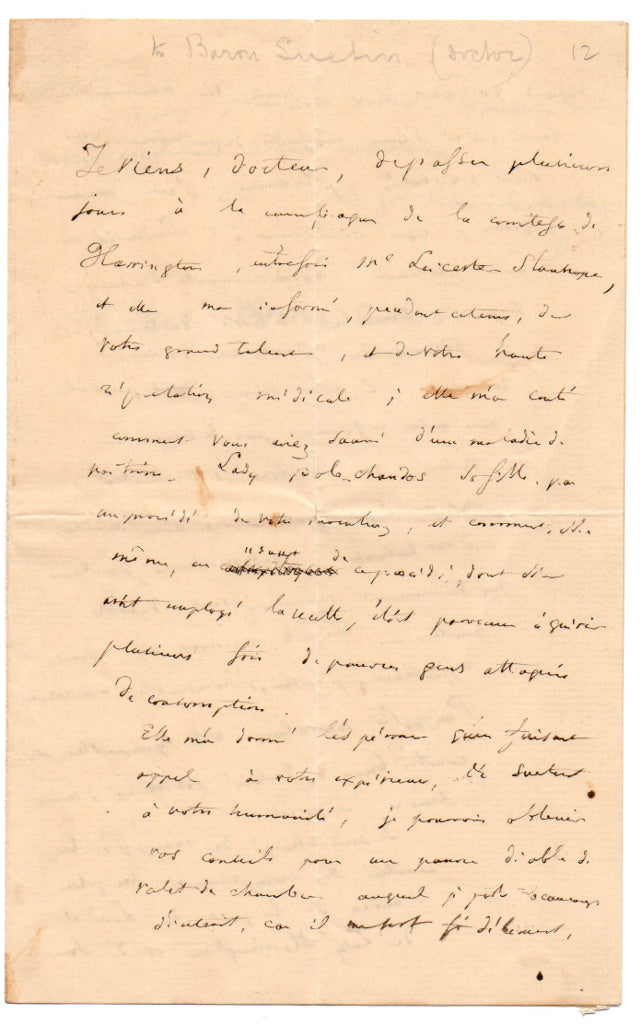 to Baron Suetin (Doctor) 12
Je viens, docteur, de passer plusieurs
jours à la campagne de la comtesse de
Harrington, autrefois Me Leicester Stanhope,
et elle m'a informé, pendant ce tems, de
votre grand talent, et de votre haute
réputation médicale ; elle m'a conté
comment vous aviez sauvé d'une maladie de
poitrine Lady pole-chandos sa fille par
un procédé de votre invention, et comment, elle
même, en usant de ce procédé, dont elle
avait employé la recette, était parvenue à guérir
plusieurs fois de pauvres gens attaqués
de consomption.
Elle m'a donné l'espérance qu'en faisant
appel à votre expérience, et surtout
à votre humanité, je pourrois obtenir
vos conseils pour un pauvre diable de
valet de chambre auquel je porte beaucoup
d'intérêt, car il m'est